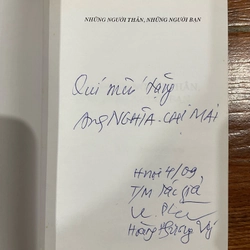 NHỮNG NGƯỜI THÂN, NHỮNG NGƯỜI BẠN
Quí mến tặng
Ang NGHĨA - CHỊ MAI
HN 4/09
T/M Tác giả
Hoàng Phương Vỹ